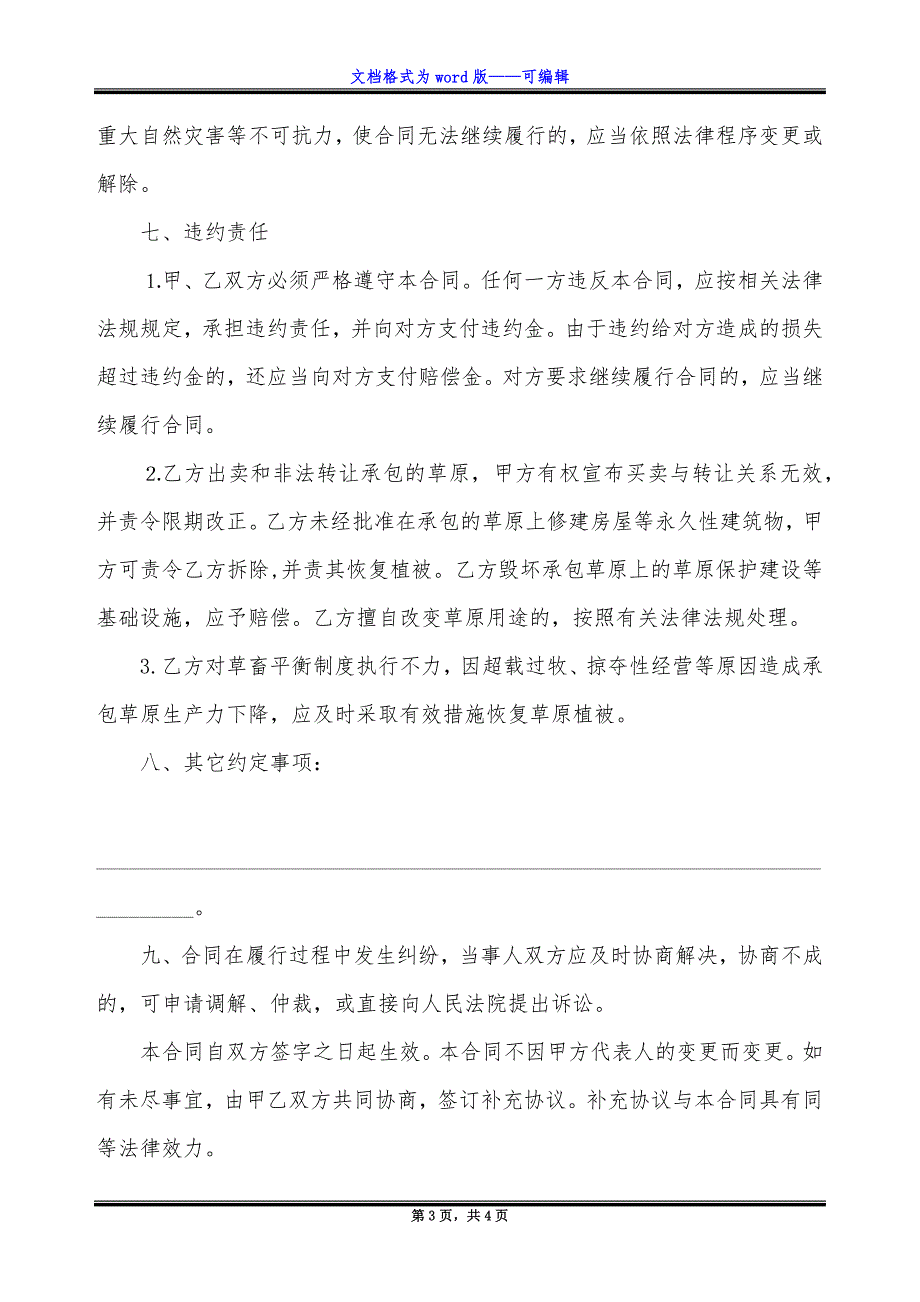 文档格式为 word 版——可编辑
重大自然灾害等不可抗力，使合同无法继续履行的，应当依照法律程序变更或
解除。
七、违约责任
1.甲、乙双方必须严格遵守本合同。任何一方违反本合同，应按相关法律
法规规定，承担违约责任，并向对方支付违约金。由于违约给对方造成的损失
超过违约金的，还应当向对方支付赔偿金。对方要求继续履行合同的，应当继
续履行合同。
2.乙方出卖和非法转让承包的草原，甲方有权宣布买卖与转让关系无效，
并责令限期改正。乙方未经批准在承包的草原上修建房屋等永久性建筑物，甲
方可责令乙方拆除,并责其恢复植被。乙方毁坏承包草原上的草原保护建设等
基础设施，应予赔偿。乙方擅自改变草原用途的，按照有关法律法规处理。
3.乙方对草畜平衡制度执行不力，因超载过牧、掠夺性经营等原因造成承
包草原生产力下降，应及时采取有效措施恢复草原植被。
八、其它约定事项：
___________________________________________________________________
_________。
九、合同在履行过程中发生纠纷，当事人双方应及时协商解决，协商不成
的，可申请调解、仲裁，或直接向人民法院提出诉讼。
本合同自双方签字之日起生效。本合同不因甲方代表人的变更而变更。如
有未尽事宜，由甲乙双方共同协商，签订补充协议。补充协议与本合同具有同
等法律效力。
第 3 页，共 4 页